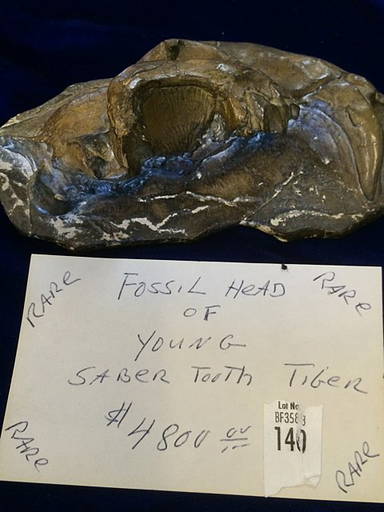 RARE
RARE
FOSSIL HEAD
OF
YOUNG
SABER TOOTH TIGER
$4800 00
RARE
RARE
Lot No.
140